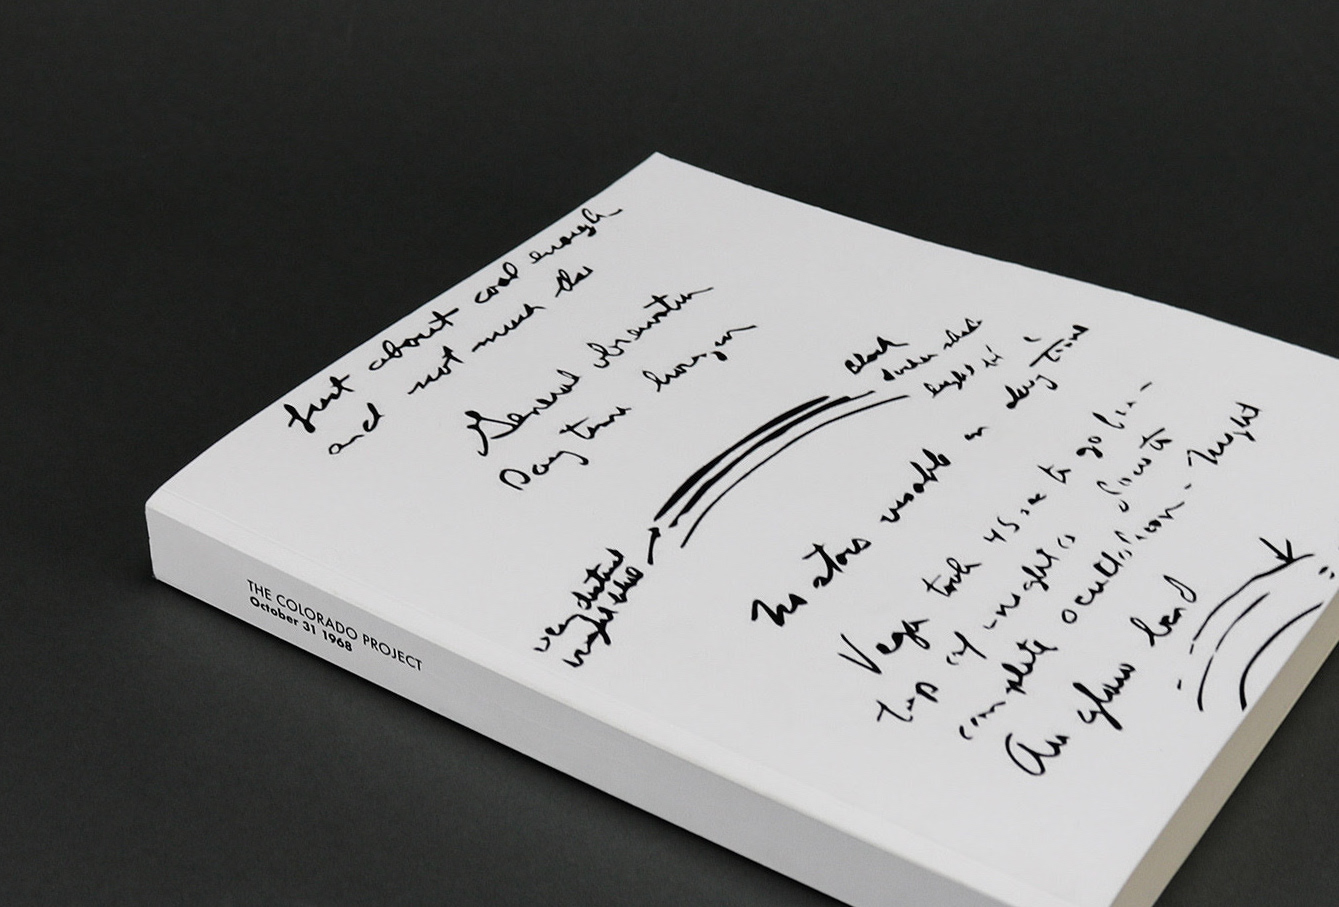 Just about cool enough
and not much else
General observation
Day time horizon
Black
very distinct
bright blue
No stars visible in day time
Vega took 45 sec to go from
top of night to
complete occultation - Night
Air glow band
THE COLORADO PROJECT
October 31 1968